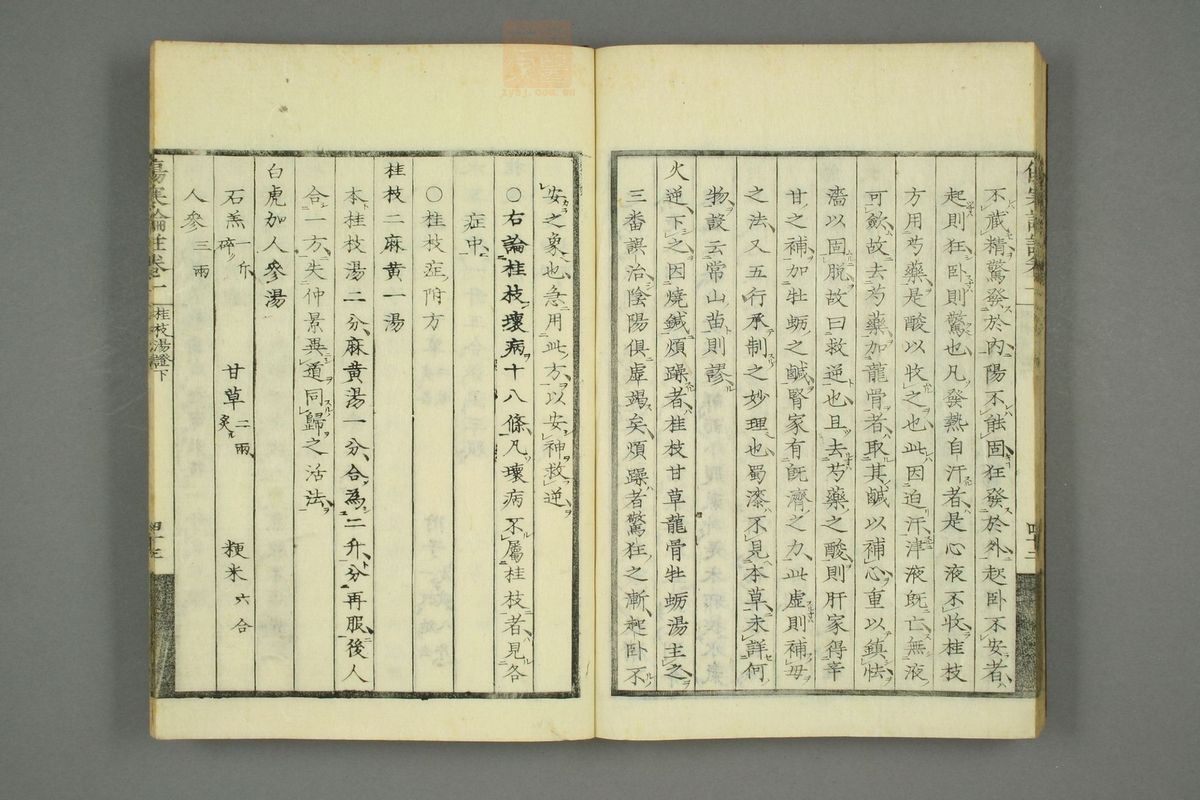 不藏精驚發於內陽不能固狂發於外起卧不安者
起則狂卧則驚也凡發熱自汗者是心液不收桂枝
方用芍藥是酸以收之也此因迫汗津液旣亡無液
可歛故去芍藥加龍骨者取其鹹以補心重以鎮怯
濇以固脫故曰救逆也且去芍藥之酸則肝家得辛
甘之補加牡蛎之鹹腎家有旣濟之力此虛則補母
之法又五行承制之妙理也蜀漆不見本草未詳何
物諸云常山苗則謬
火逆下之因燒鍼煩躁者桂枝甘草龍骨牡蛎湯主之
三番誤治陰陽俱虛竭矣煩躁者驚狂之漸起卧不
安之象也急用此方以安神救逆
○右論桂枝壞病十八條凡壞病不屬桂枝者見各
症中
○桂枝症附方
桂枝二麻黃一湯
本桂枝湯二分麻黃湯一分合為二升分再服後人
合一方失仲景異道同歸之活法
白虎加人參湯
石羔一斤碎 甘草二兩炙 粳米六合
人參三兩
傷寒論註卷二 桂枝湯證下 四十三